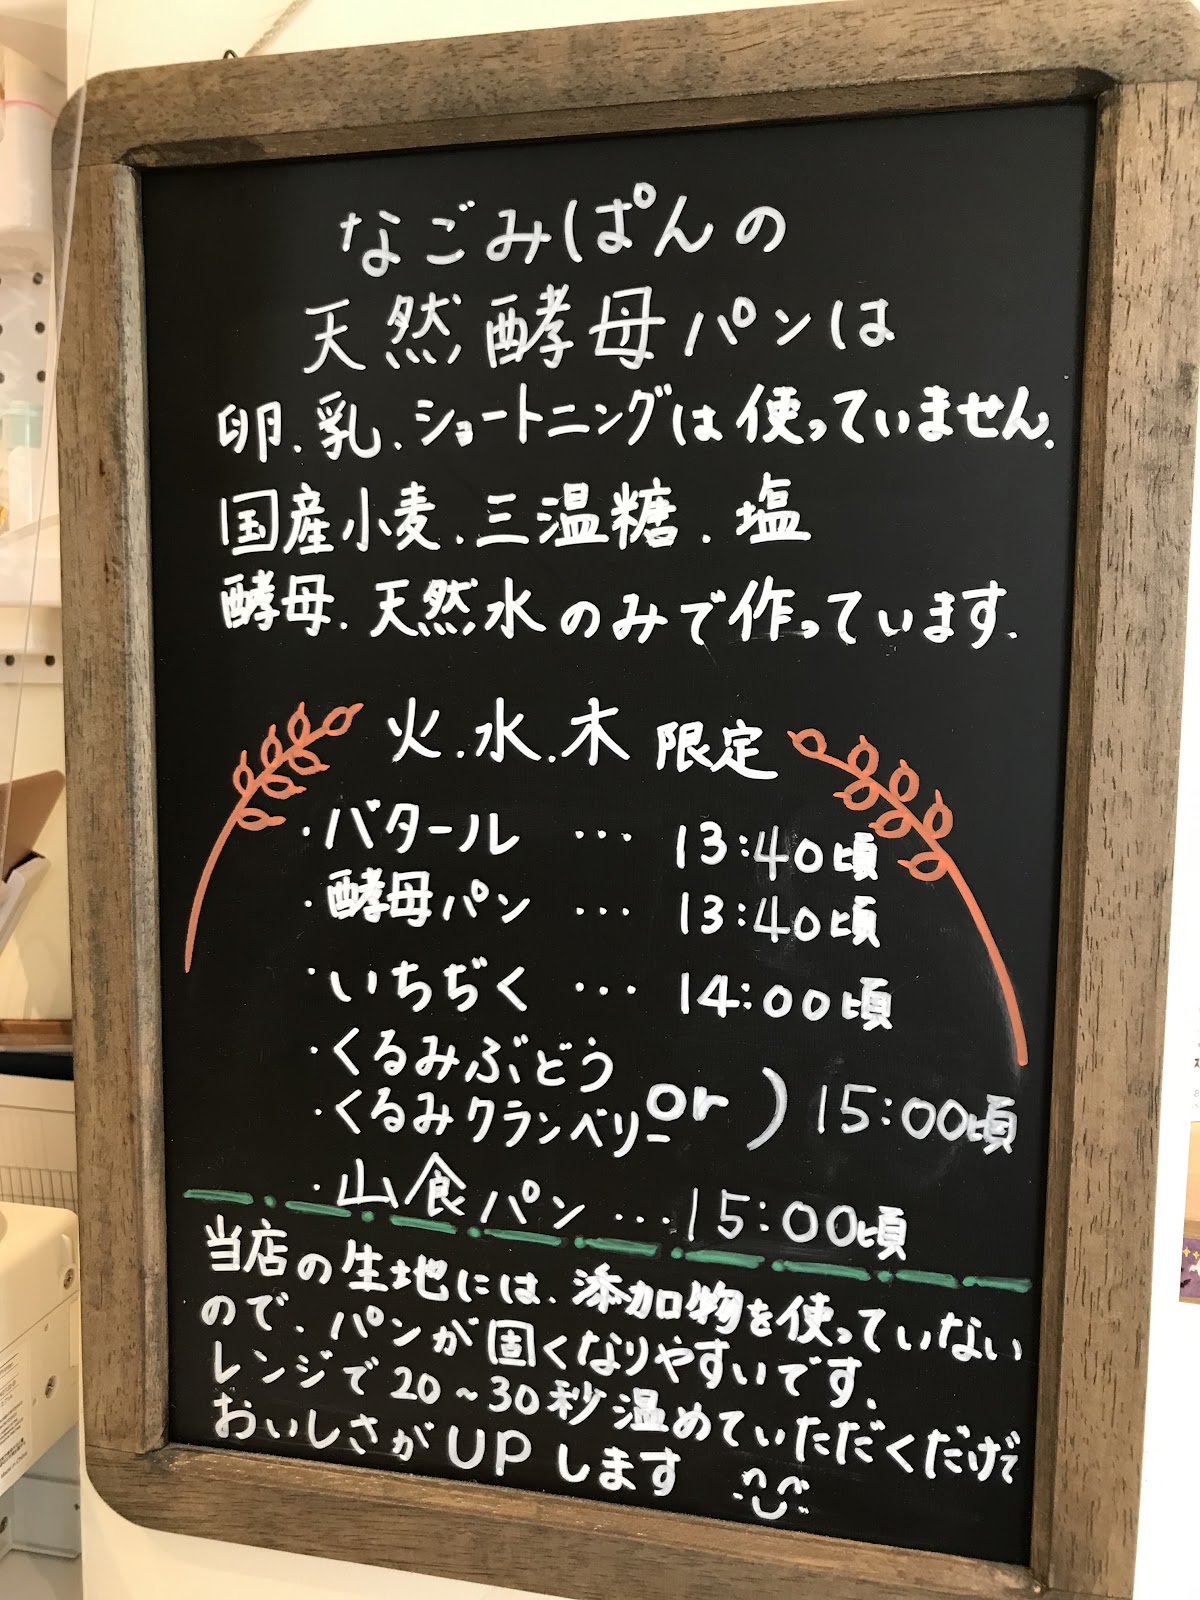 なごみぱんの
天然酵母パンは
卵.乳.ショートニングは使っていません.
国産小麦.三温糖.塩
酵母.天然水のみで作っています.
火.水.木 限定
・バタール … 13:40頃
・酵母パン … 13:40頃
・いちぢく … 14:00頃
・くるみぶどう
・くるみクランベリー or ) 15:00頃
・山食パン … 15:00頃
当店の生地には.添加物を使っていない
ので.パンが固くなりやすいです.
レンジで20~30秒温めていただくだけで
おいしさがUPします